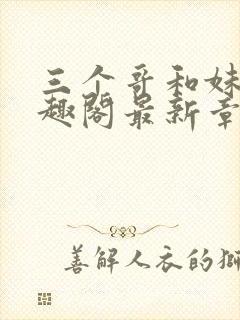 三个哥和妹
趣阁最新章
善解人衣的狮